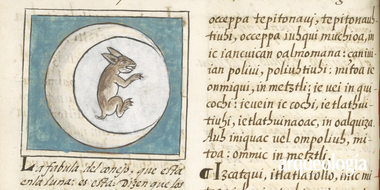 La fabula del conejo, que esta
en la luna: es esta. Dizen que los
occeppa tepitonavi, tepitonauh
tiuhi, occeppa iuhqui muchioa, in
ic iancuican oalmomana: canin-
ian poliui, poliuhtiuhi: mitoa ie
onmiqui, in metztli: ie uei in qui
cochi: ie uein ic cochi, ie tlathui
tiuhi, ie tlathuinaoac, in oalquiza.
Auh iniquac vel ompoliuh, mi-
toa: ommic in metztli.
¶ Izcatqui, itlatlatollo, inic mi